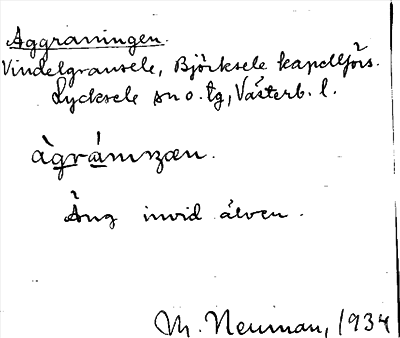 Aggranningen.
Vindelgransele, Björksele kapellförs.
Lycksele sn o. tg, Västerb. l.
àgránnzæn.
Äng invid älven.
M. Neuman, 1934